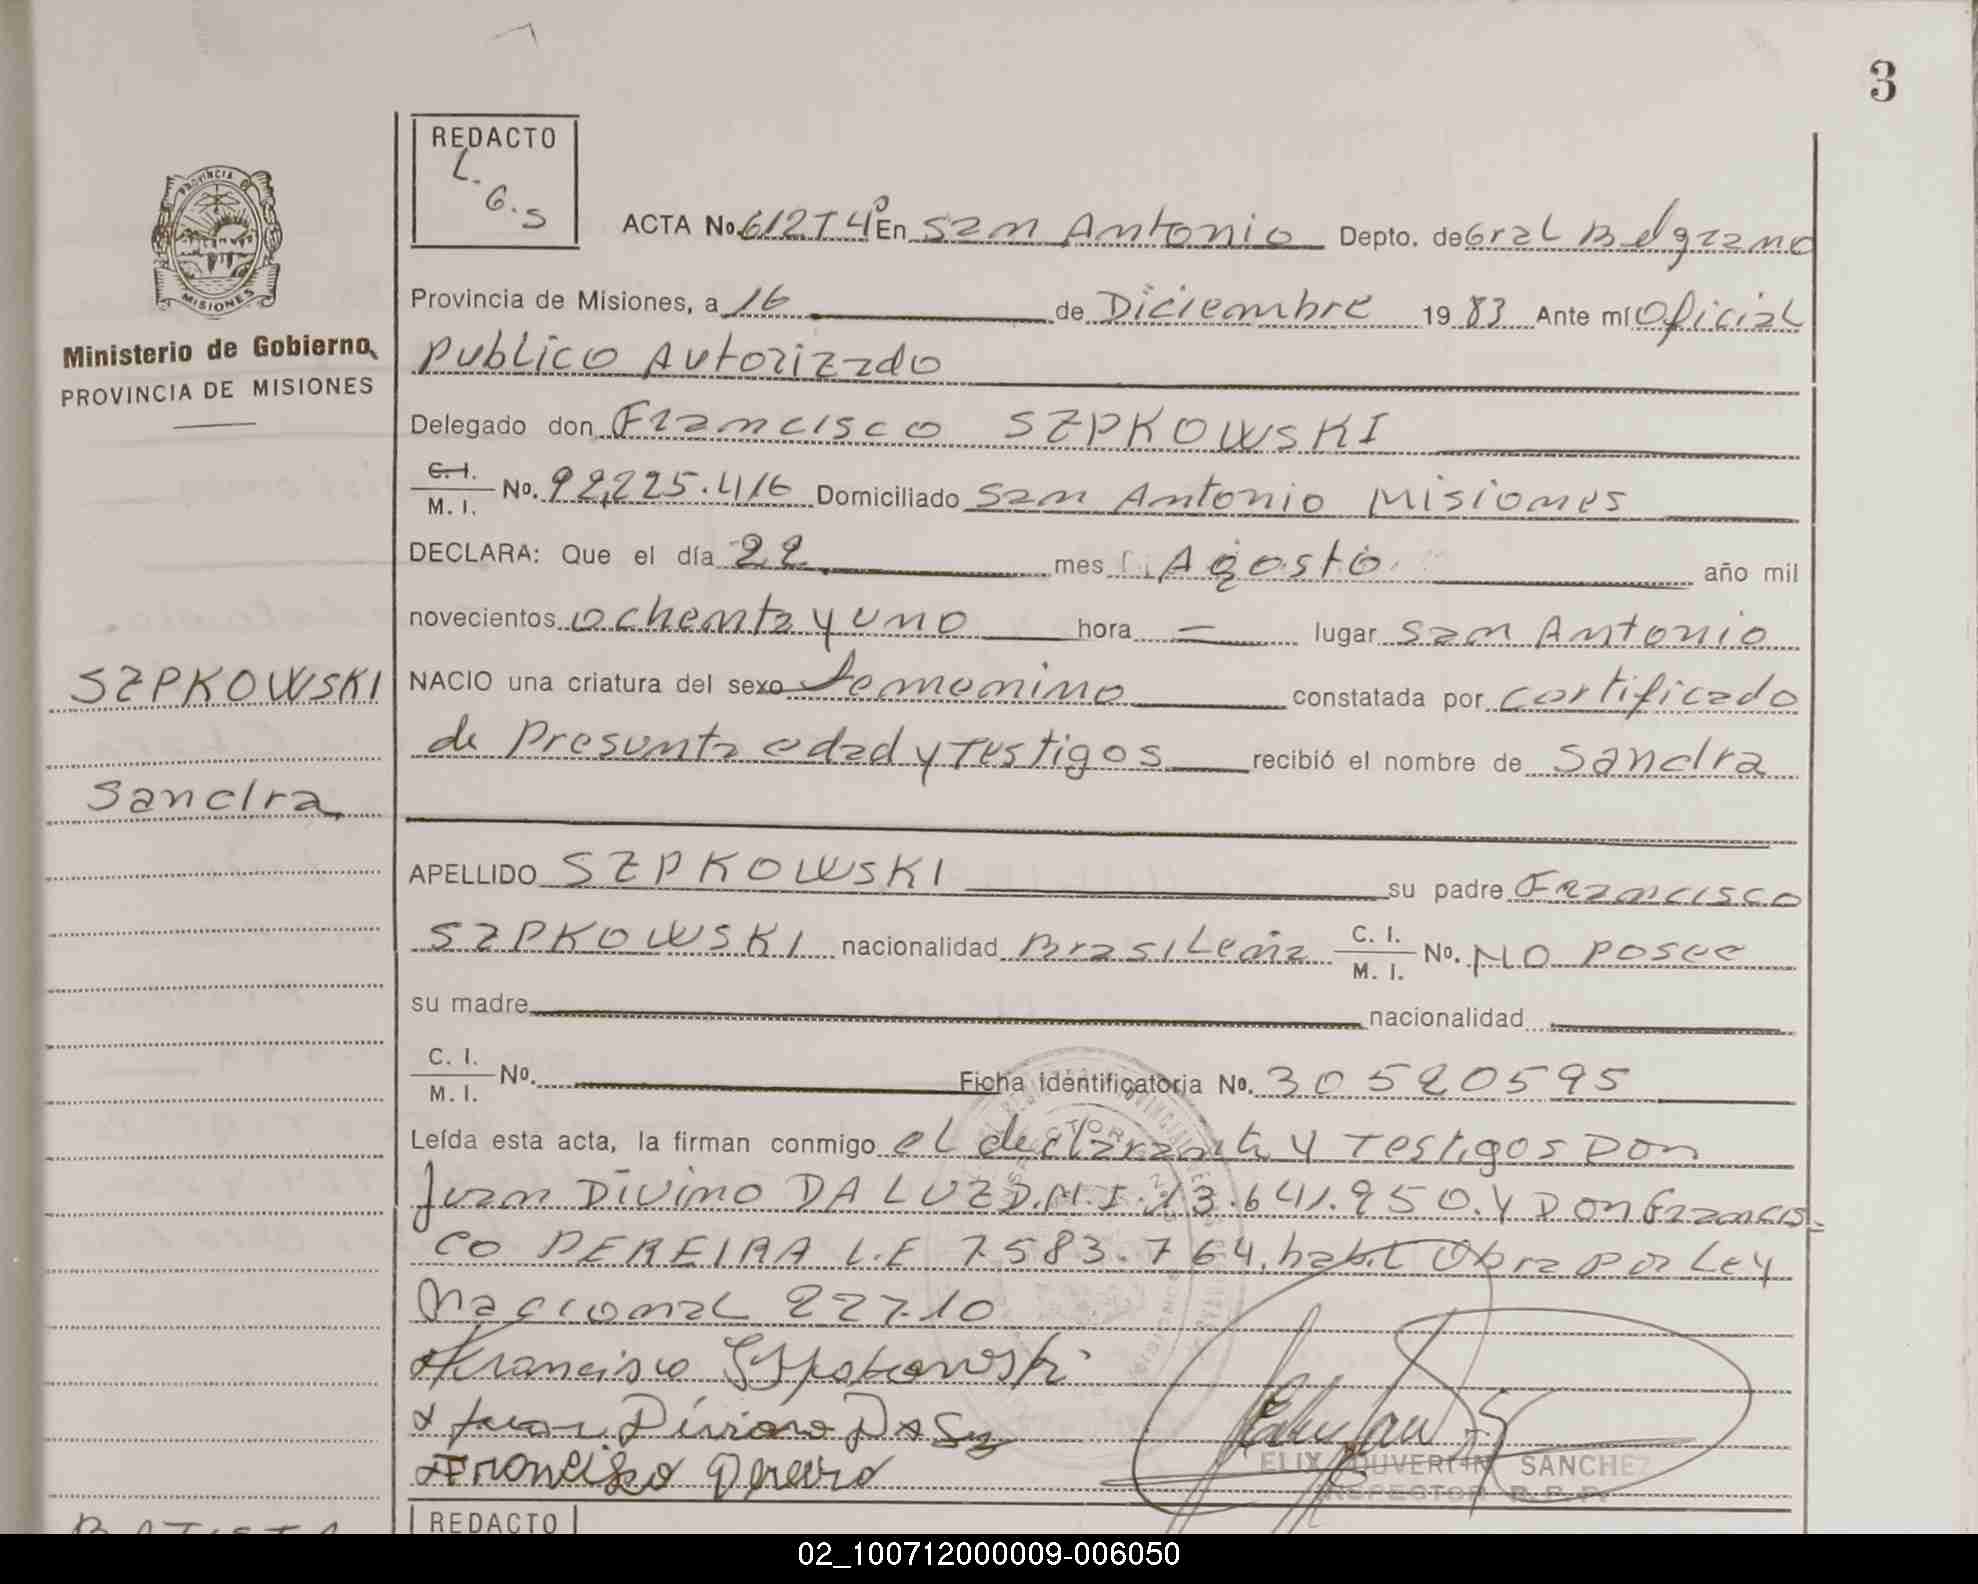 3
REDACTO
L.G.S
PROVINCIA DE
MISIONES
Ministerio de Gobierno
PROVINCIA DE MISIONES
ACTA No. 612T4º En San Antonio Depto. de Gral Belgrano
Provincia de Misiones, a 16 de Diciembre 1983 Ante mí Oficial
Publico Autorizado
Delegado don Francisco SZPKOWSKI
C.I. M. I. No. 92,225.416 Domiciliado San Antonio Misiones
DECLARA: Que el día 22 mes Agosto año mil
novecientos ochenta y uno hora — lugar San Antonio
SZPKOWSKI
NACIO una criatura del sexo femenino constatada por certificado
de Presunta edad y Testigos recibió el nombre de Sandra
Sandra
APELLIDO SZPKOWSKI su padre Francisco
SZPKOWSKI nacionalidad Brasileña C. I. M. I. No. NO POSEE
su madre nacionalidad
C. I. M. I. No. Ficha identificatoria No. 30520595
Leída esta acta, la firman conmigo el declarante y Testigos Don
Juan Divino DA LUZ D.N.I. 13.641.950. Y Don Francis-
co PEREIRA L.E 7.583.764. habil Obra por Ley
Nacional 22710
Francisco
Juan Divino Da
Francisco Pereira
SANCHEZ
INSPECTOR R. P. P.
REDACTO
BATISTA
02_100712000009-006050